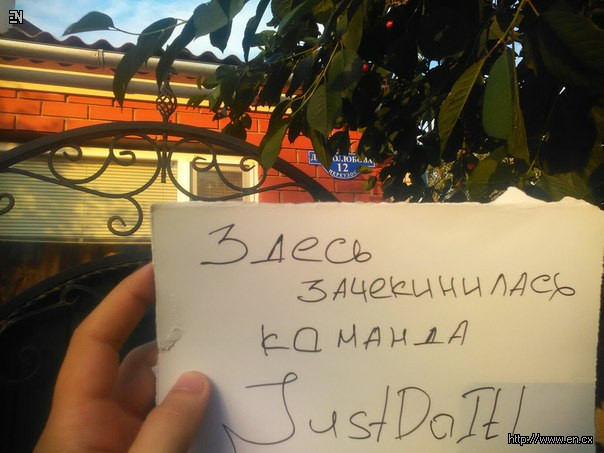 EN
12
Здесь
зачекинилась
команда
JustDoIt!
http://www.en.cx